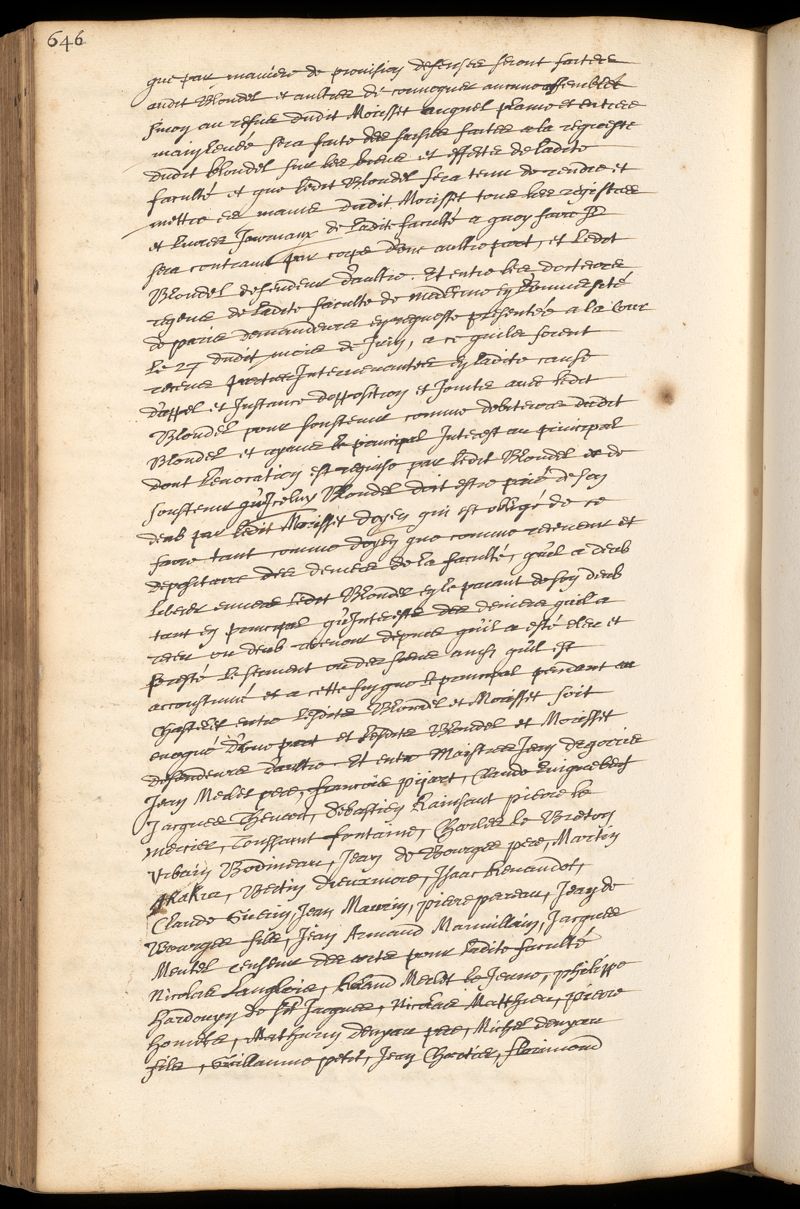 646
que par maniere de provision defenses seront faictes
audit Blondel et aultres de convoquer aucune assemblee
sinon au refus dudit Morisset auquel plaine et entiere
mainlevée sera faite des saisies faites a la requeste
dudit blondel sur les biens et effectz de ladite
faculté et que ledit Blondel sera tenu de rendre et
mettre es mains dudit Morisset tous les registres
et livres Journaux de ladite faculté a quoy faire Il
sera contraint par corps d'une aultre part, et ledit
Blondel defendeur d'aultre. Et entre les docteurs
regens de ladite faculté de medecine en l'université
de paris demandeurs en requeste presentée a la Cour
le 27 dudit mois de Juin, a ce quils soient
receus parties Intervenantes en ladite cause
d'appel et Instance d'opposition et Jointes avec ledit
Blondel pour soustenir comme debiteurs dudit
Blondel et ayans le principal Interest au principal
dont levocation est requise par ledit Blondel et de
soustenir qu'Iceluy Blondel doit estre paié de son
deub par ledit Morisset doyen qui est obligé de ce
faire tant comme doyen que comme receveur et
depositaire des deniers de la faculté, quil a deub
liberer envers ledit Blondel en le paiant de son deub
tant en principal qu'Interestz des deniers quil a
receu ou deub recevoir depuis qu'il a esté eleu et
presté le serment ou des siens ainsy qu'il est
accoustumé et a cette fin que le principal pendant au
Chastelet entre lesdits Blondel et Morisset soit
evoqué d'une part et lesdits Blondel et Morisset
defendeurs d'aultre. Et entre Maistres Jean de gorris
Jean Merlet pere, francois pijart, Claude quiquebeuf
Jacques Thevart, Sebastien Rainssant pierre le
mercier, Toussaint fontaine, Charles le Breton
Urbain Bodineau, Jean de Bourges pere, Martin
Akakia, Bertin dieuxivoie, Isaac Renaudot,
Claude Guerin, Jean Maurin, pierre perreau, Jean de
Bourges fils, Jean Armand Mauvillain, Jacques
Mentel censeur des arts pour ladite faculté
Nicolas Langlois, Roland Merlet le Jeune, philippe
hardouyn de St Jacques, Nicolas Matthieu, pierre
, Mathurin denyau pere, Michel denyau
fils, Guillaume petit, Jean Chartier, florimond